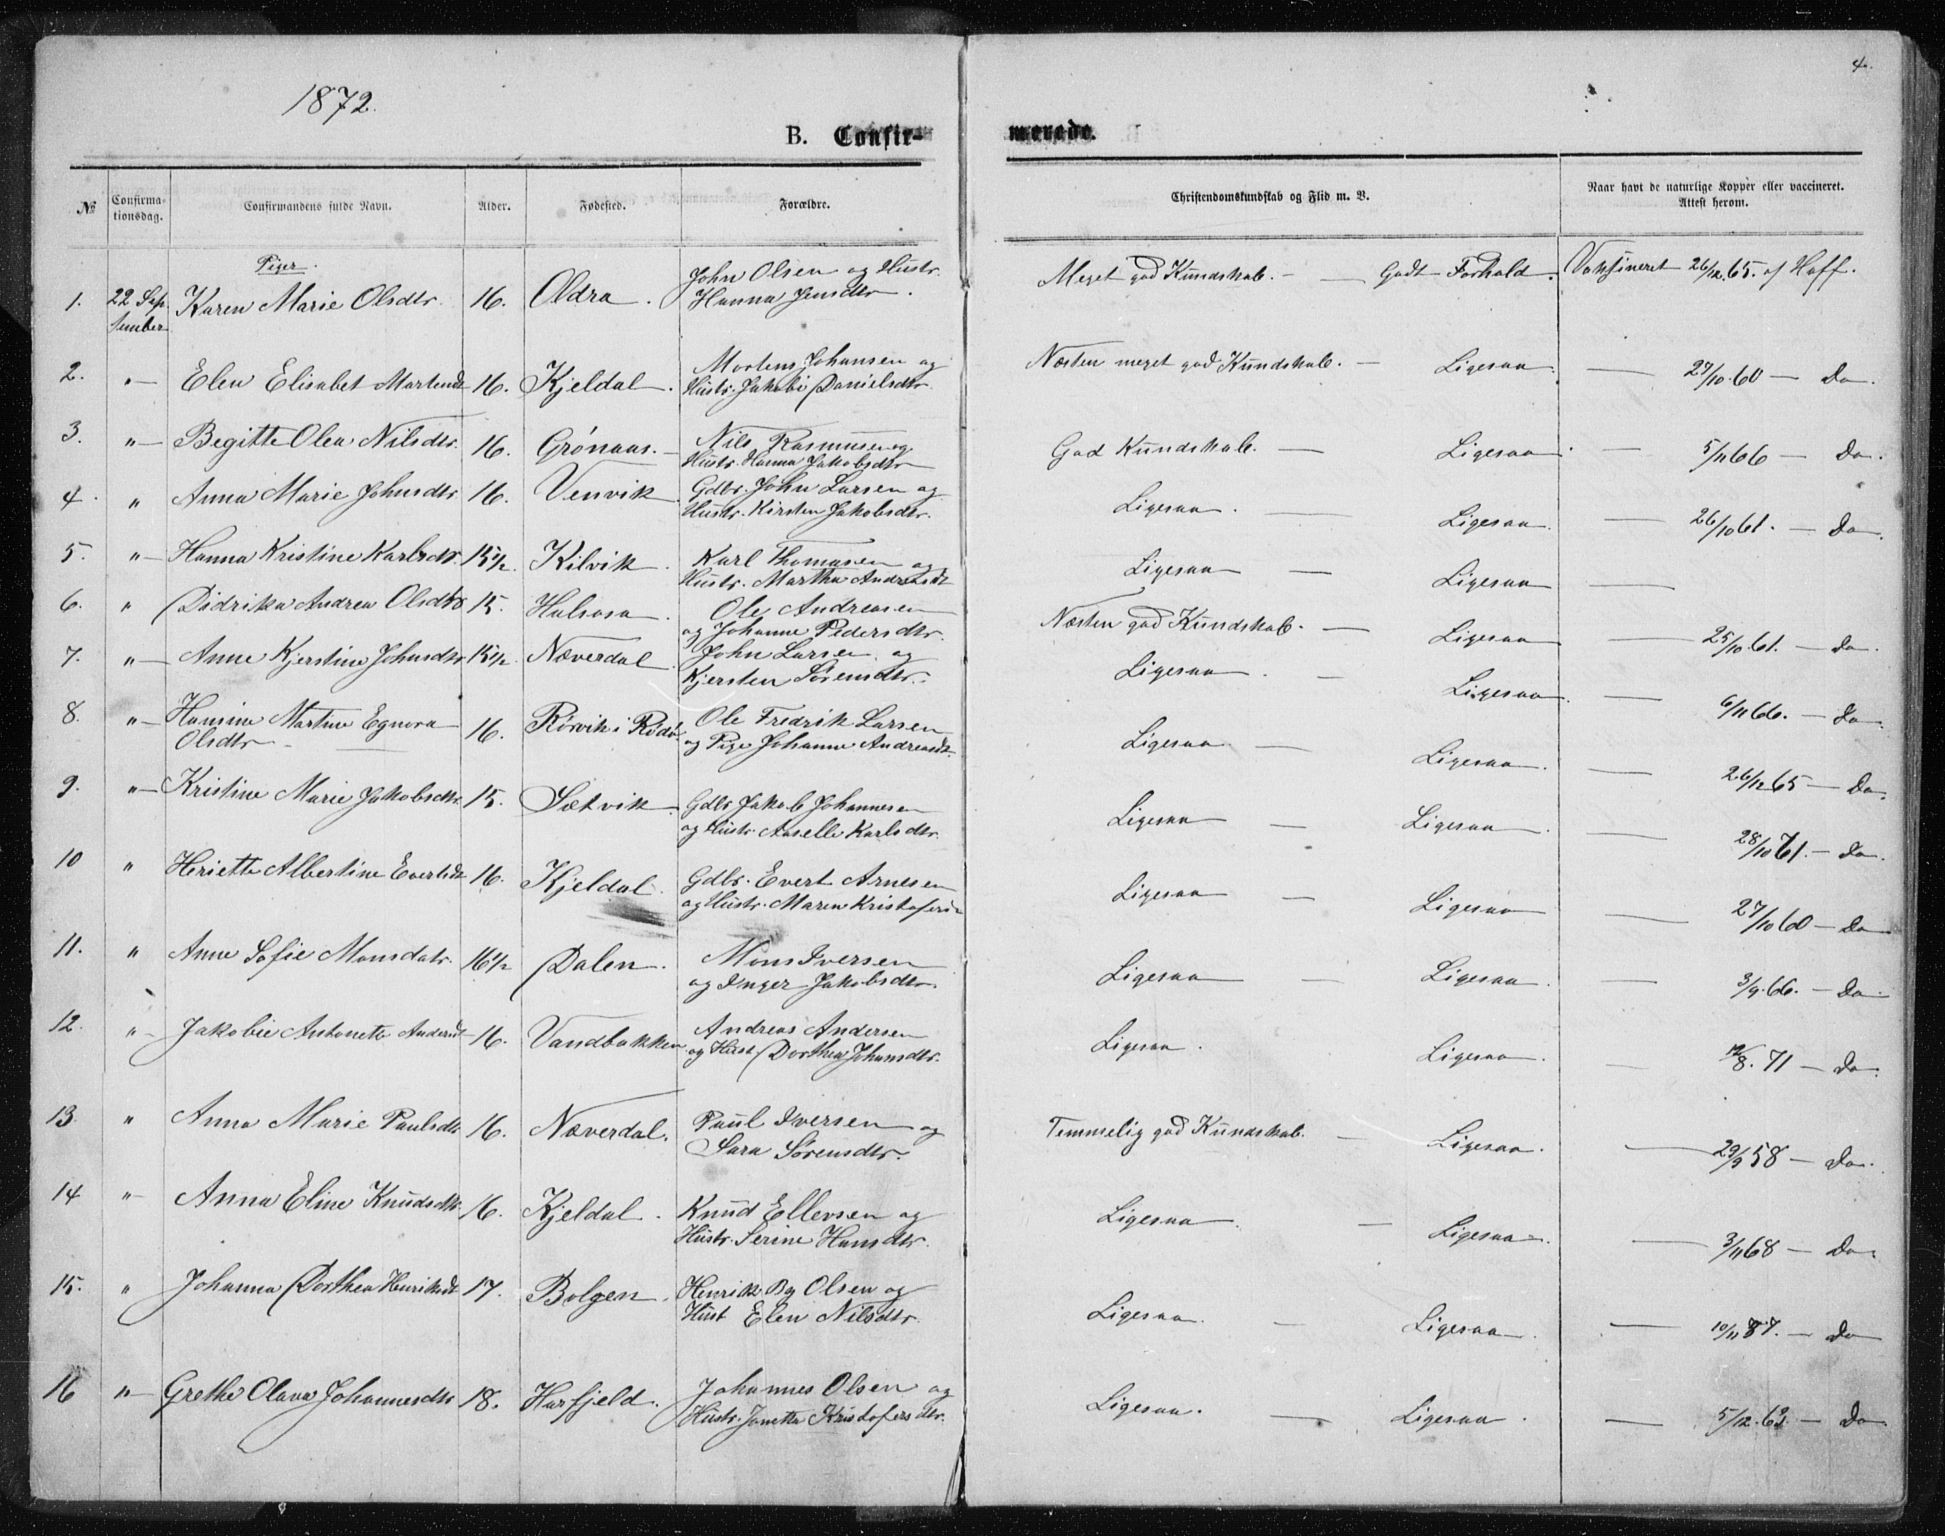 1872.
4.
B. Confir-
merede.
№
Confirma-
tionsdag.
Confirmandens fulde Navn.
Alder.
Fødested.
Forældre.
Christendomskundskab og Flid m. V.
Naar havt de naturlige Kopper eller vaccineret.
Attest herom.
Piger.
1. 22 Sep- Karen Marie Olsdtr. 16. Oldra. John Olsen og Hustr. Meget god Kundskab. — Godt Forhold. Vaksineret 26/12.65. af Hoff.
tember Hanna Jensdtr.
2. „— Elen Elisabet Martensdt 16. Kjeldal. Mortens Johansen og Næsten meget god Kundskab. — Ligesaa — 27/10.60 — Do.
Hustr. Jakobi Danielsdtr.
3. „— Begitte Olea Nilsdtr. 16. Grönaas. — Nils Rasmusen og God Kundskab. — Ligesaa. — 5/11 66 — Do.
Hustr. Hanna Jakobsdtr
4. „ Anna Marie Johnsdtr. 16. Venvik. Gdbr. John Larsen og Ligesaa. — Ligesaa. — 26/10 61. — Do.
Hustr. Kirsten Jakobsdtr.
5. „— Hanna Kristine Karlsdtr. 15 1/2. Kilvik. Karl Thomasen og Ligesaa — Ligesaa —
Hustr. Martha Andreasdt
6. „ Didrika Andrea Olsdtr 15. Halsosa. Ole Andreasen Næsten god Kundskab. — Ligesaa — 25/10.61. — Do.
og Johanne Pedersdtr.
7. „— Anne Kjerstine Johnsdtr 15 1/2. Næverdal. John Larsen og Ligesaa. — Ligesaa. — 6/11 66. — Do.
Kjersten Sörensdtr.
8. „— Hansine Martine Egnora 16. Rörvik i Rödö Ole Fredrik Larsen Ligesaa — Ligesaa. — 26/12 65 — Do.
Olsdtr — og Pige Johanne Andreasdt.
9. „— Kristine Marie Jakobsdtr. 15. Sætvik. Gdbr Jakob Johannesen Ligesaa — Ligesaa. — 28/10 61. — Do.
og Hustr. Karlsdtr.
10 „ Heriette Albertine Evertsdt 16. Kjeldal. Gdbr. Evert Arnesen Ligesaa — Ligesaa — 27/10 60 — Do
og Hustr. Maren Kristofersd
11. „ Anne Sofie Monsdatr. 16 1/2 Dalen. Mons Iversen Ligesaa — Ligesaa. — 3/9.66. — Do.
og Inger Jakobsdtr.
12. „— Jakobie Antonette Andersdt 16. Vandbakken. Andreas Andersen Ligesaa. Ligesaa. — 12/8. 71 — Do.
og Hust Dorthea Johansdtr.
13. „ Anna Marie Paulsdtr 16. Næverdal. Paul Iversen og Temmelig god Kundskab. — Ligesaa. — 29/9 58 — Do.
Sara Sörensdtr.
14 „— Anna Eline Knudsdtr. 16. Kjeldal. Knud Ellevsen og Ligesaa. — Ligesaa. — 3/11 68 — Do.
Hustr. Serine Hansdtr.
15. „ Johanna Dorthea Henriksdt 17. Bolgen. Henrik Olsen og Ligesaa. Ligesaa. — 10/11 — Do
Hust Elen Nilsdtr.
16 „— Grethe Olava Johannesdtr 18. Harfjeld. Johannes Olsen og Ligesaa. — Ligesaa. — 5/12. — Do
Hustr. Janetta Kristofersdtr.